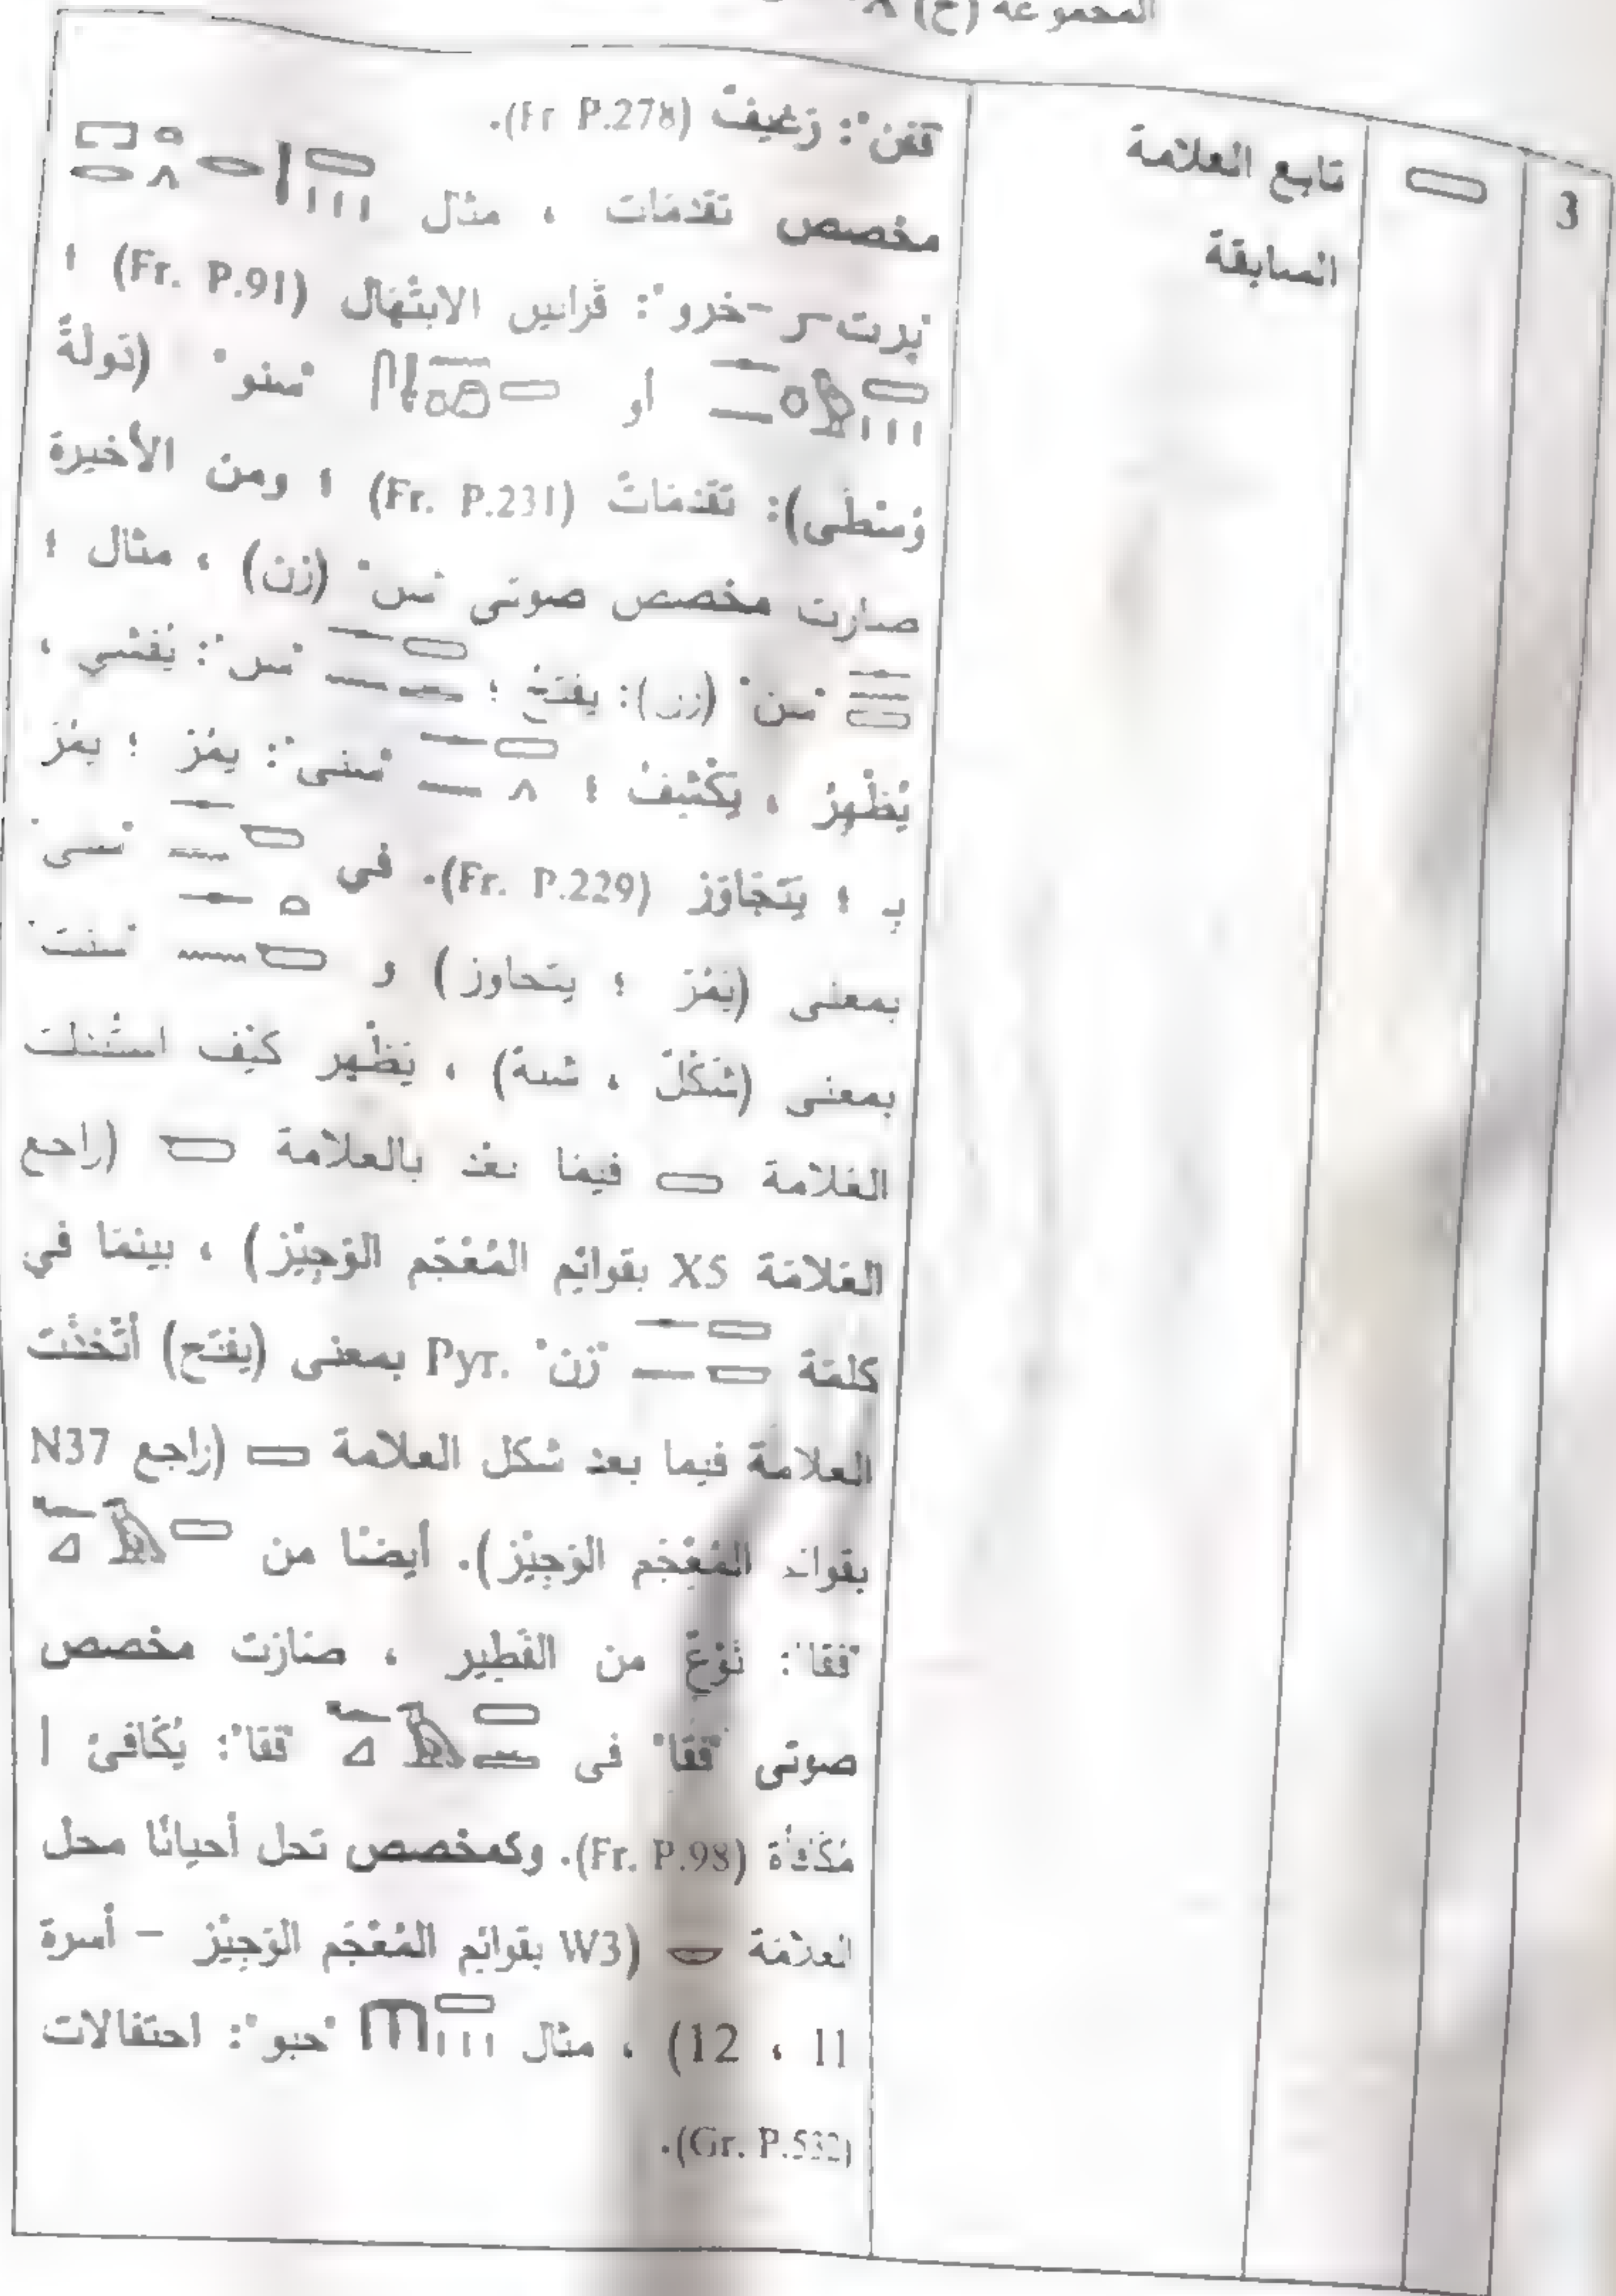 المجموعة (ح)
3
تابع العلامة
السابقة
"قفن": رَغيفٌ (Fr P.278).
مخصص تقدمَات ، مثل
"برت-ر-خرو": قرابين الابتهال (Fr. P.91) ؛
أو "سنو" (دَولةٌ
وُسْطَى): تَقْدمَاتٌ (Fr. P.231) ؛ ومن الأخيرة
صارت مخصص صوتى "سن" (زن) ، مثال ؛
"سن" (زن): يفتحُ ؛ "سن": يُفشي ،
يُظْهِرُ ، يَكْشِفُ ؛ "سنى": يمُرُ ؛ يمُرُ
بِ ؛ يَتَجَاوَز (Fr. P.229). في "سنى"
بمعنى (يَمُرَ ؛ يتجاوز) و "سنت"
بمعنى (شَكْلٌ ، شبهٌ) ، يَظْهر كيْف استُبْدلت
العَلامَة فيمَا بعْدَ بالعلامَة (راجع
العَلامَة X5 بقوائِم المُعْجَم الوَجِيْز) ، بينمَا في
كلمَة "زن" Pyr. بمعنى (يفتَح) أتَّخذَت
العلامَة فيما بعدَ شكل العلامَة (راجع N37
بقوائم المُعْجَم الوَجِيْز). أيضًا من
"فقا": نَوْعٌ من الفَطِير ، صَارَت مخصص
صوتى "فقا" فى "فقا": يُكَافئ |
مُكَافأة (Fr. P.98). وكمخصص تحل أحيانًا محل
العلامَة (W3 بقوائِم المُعْجَم الوَجِيْز – أسرة
11 ، 12) ، مثال "حبو": احتفالات
(Gr. P.532).